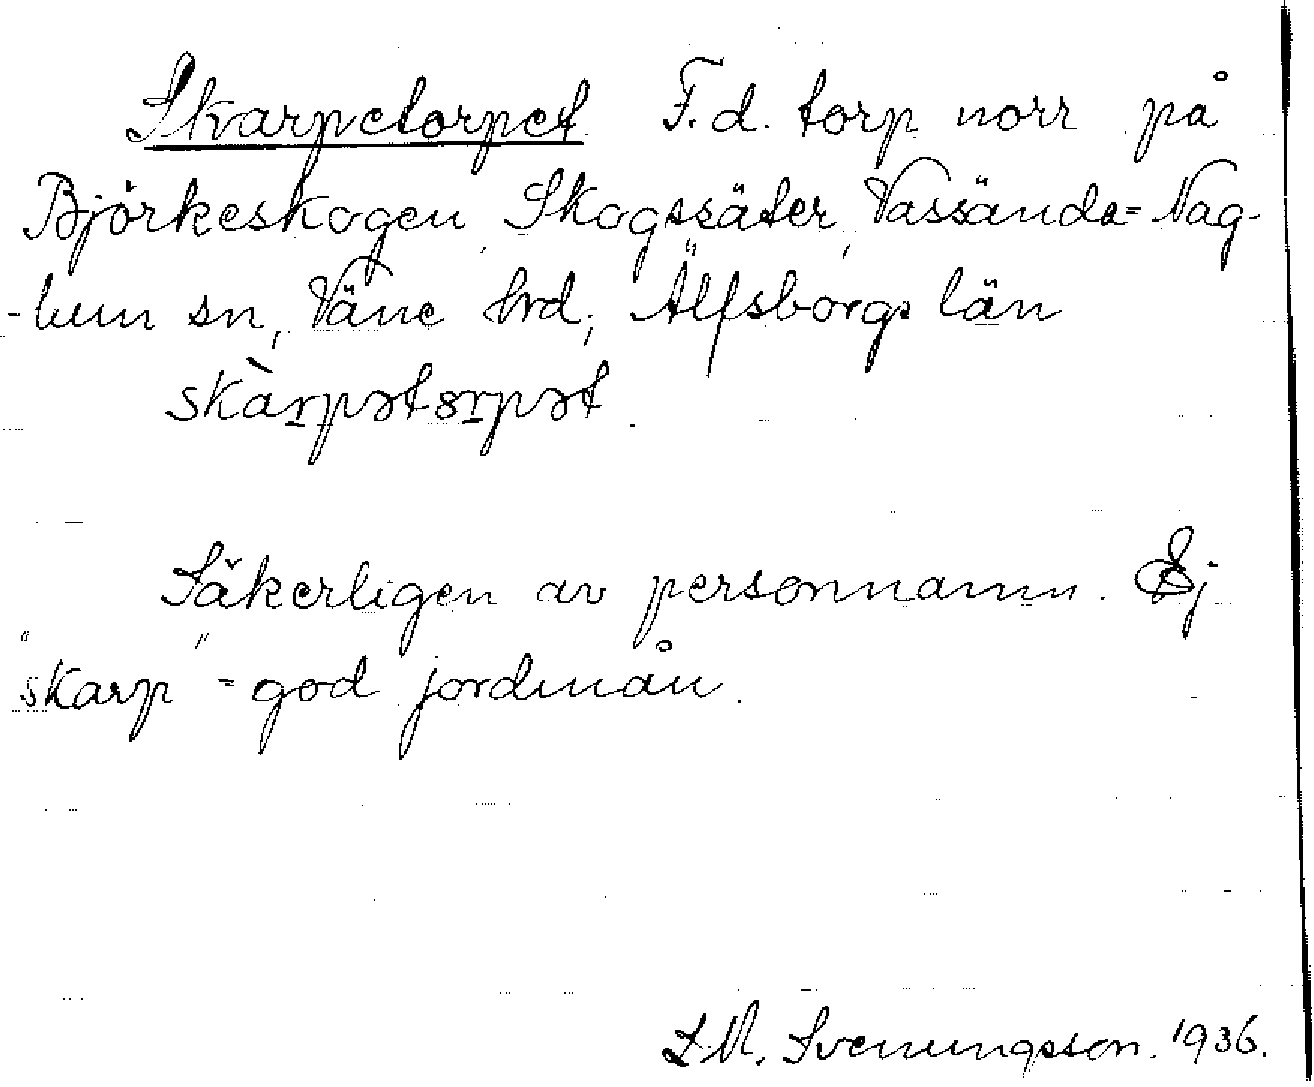 Skarpetorpet F.d. torp norr på
Björkeskogen, Skogssäter, Vassända=Nag-
-lum sn, Väne hrd, Älfsborgs län
skàrpətɔrpət.
Säkerligen av personnamn. Ej
"skarp" = god jordmån.
S. M. Svenungsson. 1936.